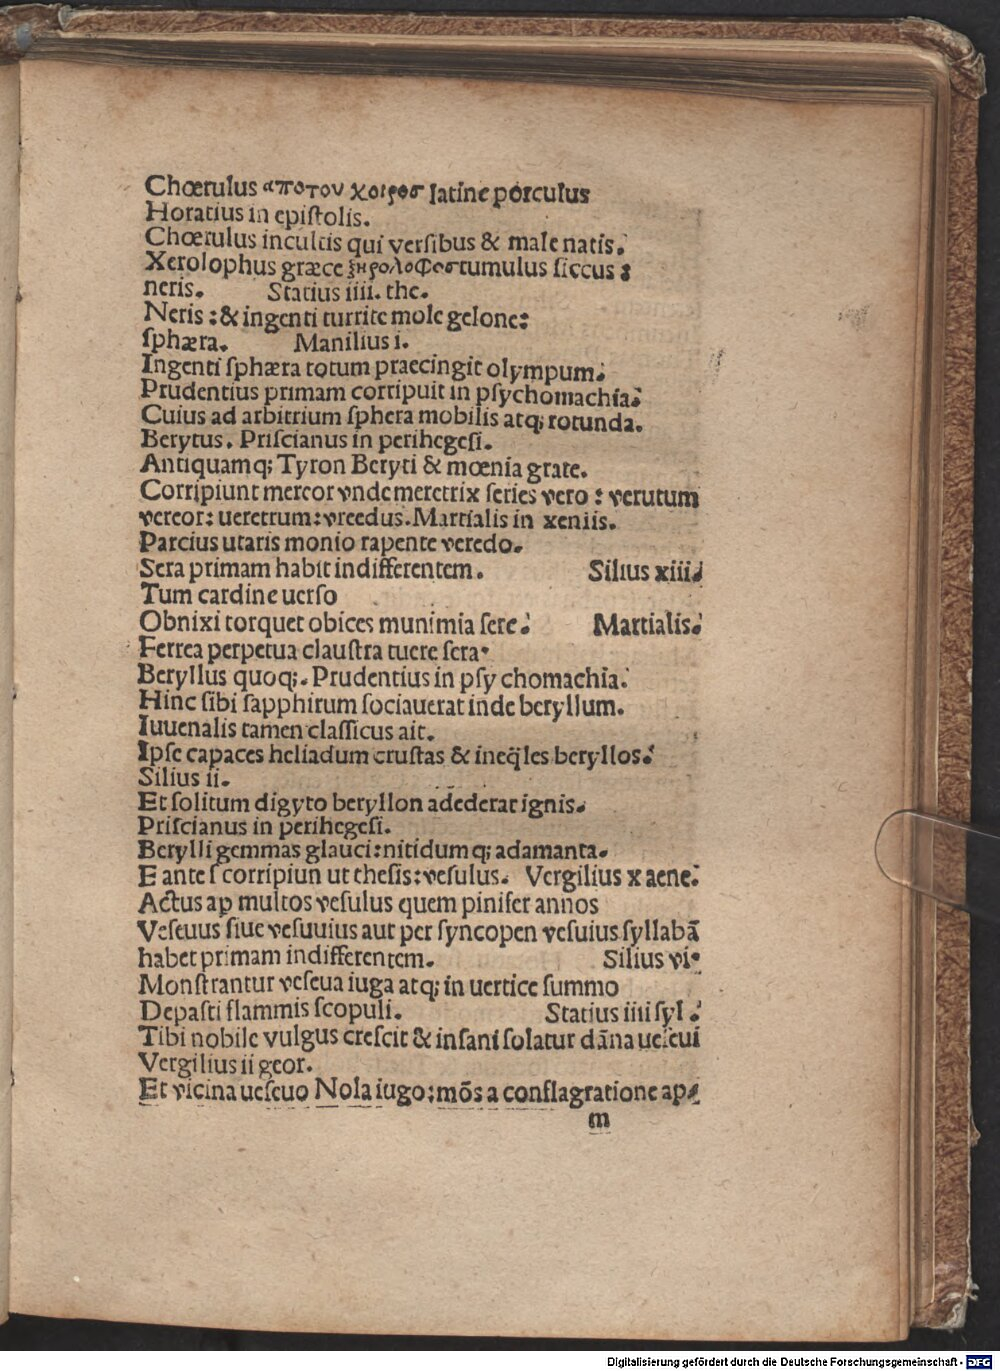 Chœrulus αποτου χοιροσ latine porculus
Horatius in epiſtolis.
Chœrulus incultis qui verſibus & male natis.
Xerolophus græce ξηρολοφοσ tumulus ſiccus :
neris. Statius iiii. the.
Neris : & ingenti turrite mole gelone:
ſphæra. Manilius i.
Ingenti ſphæra totum praecingit olympum.
Prudentius primam corripuit in pſychomachia.
Cuius ad arbitrium ſphera mobilis atq; rotunda.
Berytus. Priſcianus in perihegeſi.
Antiquamq; Tyron Beryti & mœnia grate.
Corripiunt mereor vnde meretrix ſeries vero : verutum
vereor: ueretrum: vreedus. Martialis in xeniis.
Parcius utaris monio rapente veredo.
Sera primam habit indifferentem. Silius xiii.
Tum cardine uerſo
Obnixi torquet obices munimia ſere. Martialis.
Ferrea perpetua clauſtra tuere ſera.
Beryllus quoq;. Prudentius in pſy chomachia.
Hinc ſibi ſapphirum ſociauerat inde beryllum.
Iuuenalis tamen claſſicus ait.
Ipſe capaces heliadum cruſtas & ineq̃les beryllos.
Silius ii.
Et ſolitum digyto beryllon adederat ignis.
Priſcianus in perihegeſi.
Berylli gemmas glauci: nitidumq; adamanta.
E ante ſ corripiun ut theſis: veſulus. Vergilius x aene.
Actus ap multos veſulus quem pinifer annos
Veſeuus ſiue veſuuius aut per ſyncopen veſuius ſyllabã
habet primam indifferentem. Silius vi.
Monſtrantur veſeua iuga atq; in uertice ſummo
Depaſti flammis ſcopuli. Statius iiii ſyl.
Tibi nobile vulgus creſcit & inſani ſolatur dãna ueſeui
Vergilius ii geor.
Et vicina ueſeuo Nola iugo: mõs a conflagratione ap
m
Digitalisierung gefördert durch die Deutsche Forschungsgemeinschaft - DFG